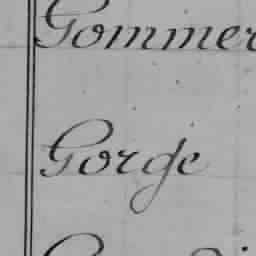 Gommer
Gorge